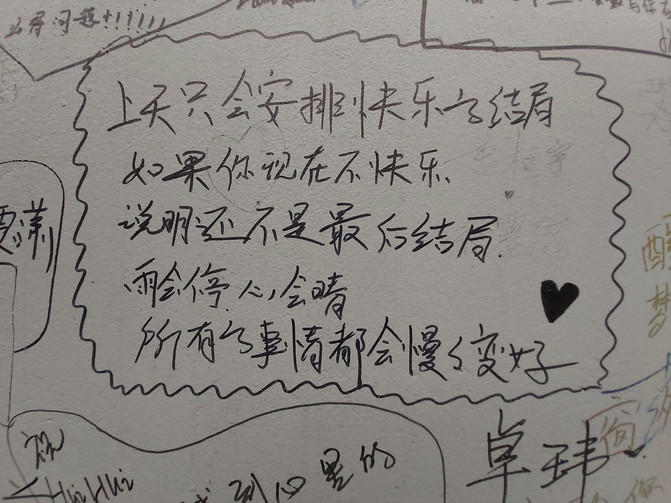 么得问题!!!!!!
上天只会安排到快乐的结局
如果你现在不快乐
说明还不是最后结局.
雨会停 心会晴
所有的事情都会慢慢变好
祝
HuiHui
到心里的
卓玮